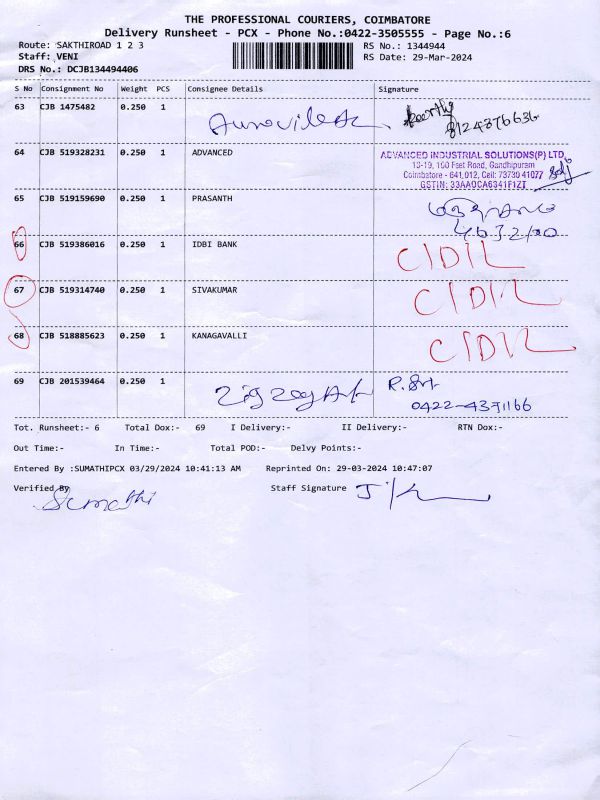 THE PROFESSIONAL COURIERS, COIMBATORE
Delivery Runsheet - PCX - Phone No.:0422-3505555 - Page No.:6
Route: SAKTHIROAD 1 2 3
RS No.: 1344944
Staff: VENI
RS Date: 29-Mar-2024
DRS No.: DCJB134494406
S No Consignment No Weight PCS Consignee Details Signature
63 CJB 1475482 0.250 1
Keerthy
8124376636
64 CJB 519328231 0.250 1 ADVANCED
ADVANCED INDUSTRIAL SOLUTIONS(P) LTD
13-19, 100 Feet Road, Gandhipuram
Coimbatore - 641 012, Cell: 73730 41077
GSTIN: 33AAOCA6341F1ZT
65 CJB 519159690 0.250 1 PRASANTH
66 CJB 519386016 0.250 1 IDBI BANK C/D/L
67 CJB 519314740 0.250 1 SIVAKUMAR C/D/L
68 CJB 518885623 0.250 1 KANAGAVALLI C/D/L
69 CJB 201539464 0.250 1 Zigzag
0422-4371166
Tot. Runsheet:- 6 Total Dox:- 69 I Delivery:- II Delivery:- RTN Dox:-
Out Time:- In Time:- Total POD:- Delvy Points:-
Entered By :SUMATHIPCX 03/29/2024 10:41:13 AM Reprinted On: 29-03-2024 10:47:07
Verified By Staff Signature
Sumathi